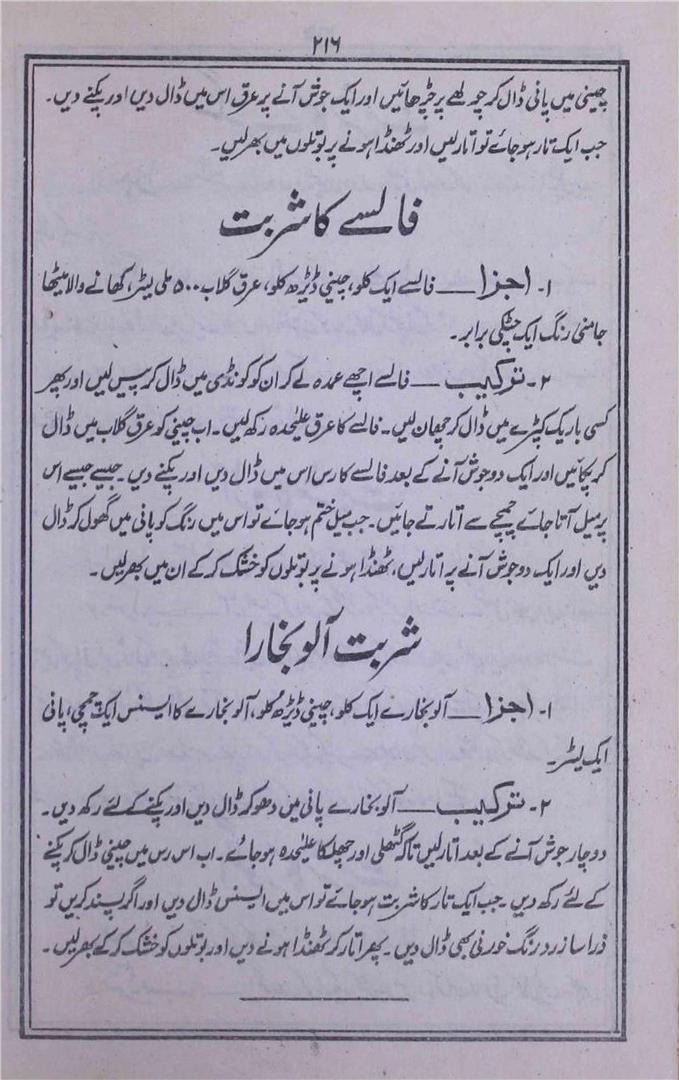 ۲۱۶
چینی میں پانی ڈال کر چولھے پر چڑھائیں اور ایک جوش آنے پر عرق اس میں ڈال دیں اور پکنے دیں۔
جب ایک تار ہو جائے تو اتار لیں اور ٹھنڈا ہونے پر بوتلوں میں بھر لیں۔
فالسے کا شربت
۱۔ اجزا — فالسے ایک کلو، چینی ڈیڑھ کلو، عرق گلاب ۵۰۰ ملی لیٹر، کھانے والا میٹھا
جامنی رنگ ایک چٹکی برابر۔
۲۔ ترکیب — فالسے اچھے عمدہ لے کر ان کو کونڈی میں ڈال کر پیس لیں اور پھر
کسی باریک کپڑے میں ڈال کر چھان لیں۔ فالسے کا عرق علیٰحدہ رکھ لیں۔ اب چینی کو عرق گلاب میں ڈال
کر پکائیں اور ایک دو جوش آنے کے بعد فالسے کا رس اس میں ڈال دیں اور پکنے دیں۔ جیسے جیسے اس
پر میل آتا جائے چمچے سے اتارتے جائیں۔ جب میل ختم ہو جائے تو اس میں رنگ کو پانی میں گھول کر ڈال
دیں اور ایک دو جوش آنے پر اتار لیں، ٹھنڈا ہونے پر بوتلوں کو خشک کر کے ان میں بھر لیں۔
شربت آلو بخارا
۱۔ اجزا — آلو بخارے ایک کلو، چینی ڈیڑھ کلو، آلو بخارے کا ایسنس ایک چمچی، پانی
ایک لیٹر۔
۲۔ ترکیب — آلو بخارے پانی میں دھو کر ڈال دیں اور پکنے کے لئے رکھ دیں۔
دو چار جوش آنے کے بعد اتار لیں تاکہ گٹھلی اور چھلکا علیٰحدہ ہو جائے۔ اب اس رس میں چینی ڈال کر پکنے
کے لئے رکھ دیں۔ جب ایک تار کا شربت ہو جائے تو اس میں ایسنس ڈال دیں اور اگر پسند کریں تو
ذرا سا زرد رنگ خوردنی بھی ڈال دیں۔ پھر اتار کر ٹھنڈا ہونے دیں اور بوتلوں کو خشک کر کے بھر لیں۔